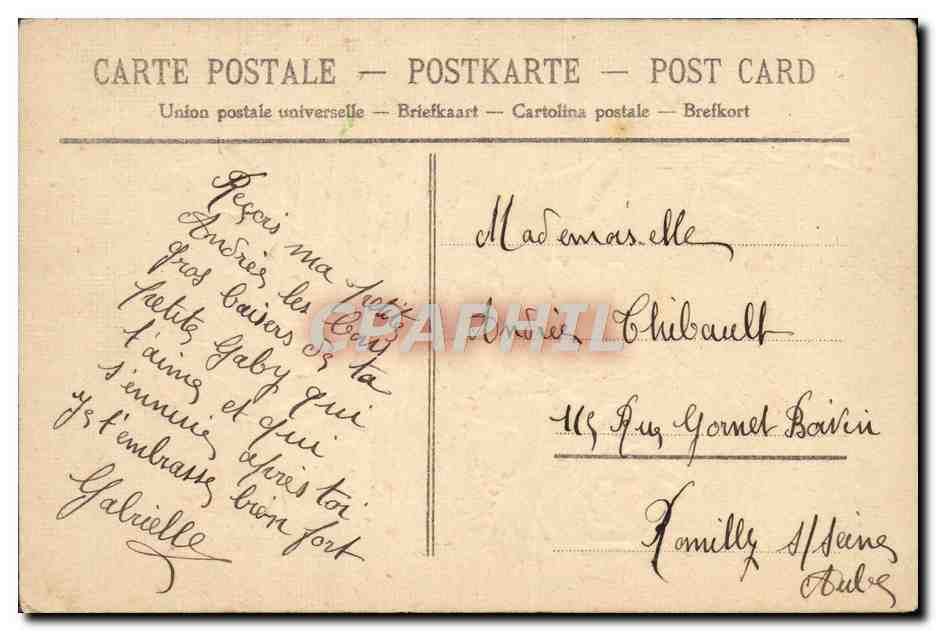 CARTE POSTALE — POSTKARTE — POST CARD
Union postale universelle — Briefkaart — Cartolina postale — Brefkort
Reçois ma petite
Andrée les bons
gros baisers de ta
petite Gaby qui
t'aime et qui
s'ennuie après toi
je t'embrasse bien fort
Gabrielle
Mademoiselle
Andrée Thibault
115 Rue Gornet Boivin
Romilly s/Seine
Aube
CPAPHIL